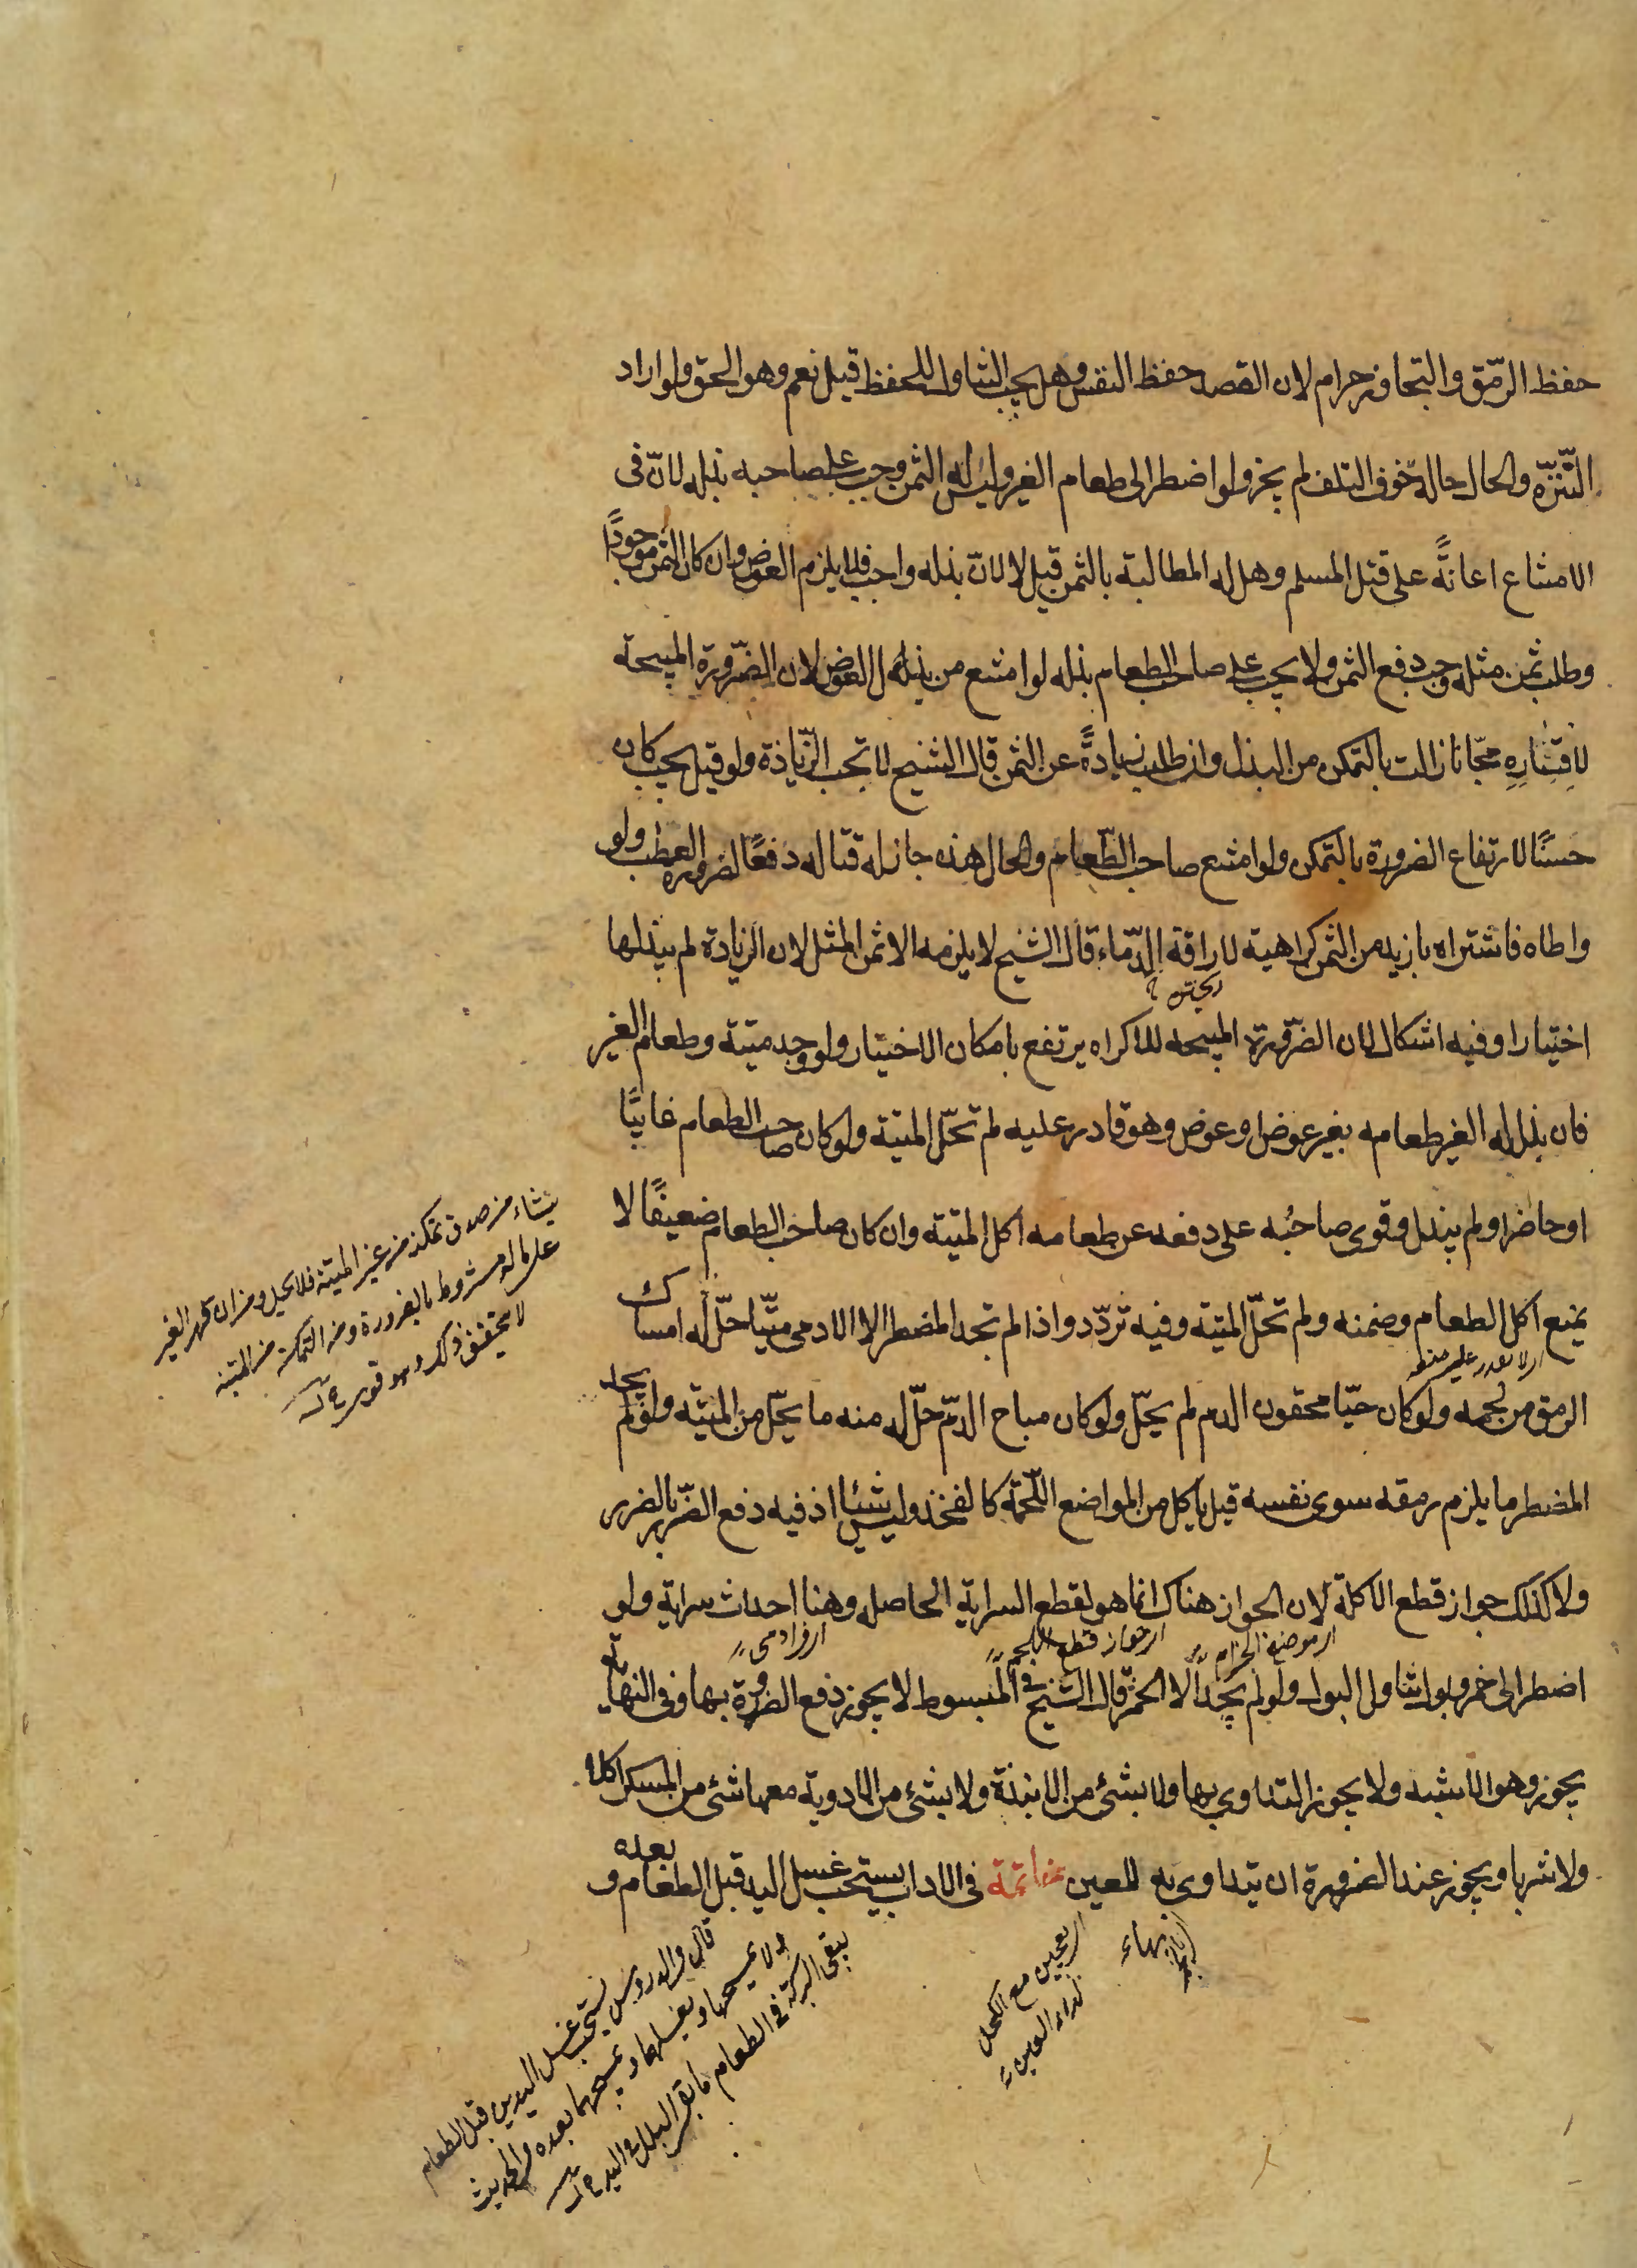 حفظ الرّمق والتجاوز حرام لان القصد حفظ النفس وهل يجب التناول للحفظ قيل نعم وهو الحق ولو اراد
التّنزّه والحال حالة خوف التلف لم يجز ولو اضطر الى طعام الغير وليس له الثمن وجب على صاحبه بذله لانّ فى
الامتناع اعانةً على قتل المسلم وهل له المطالبة بالثمن قيل لا لانّ بذله واجب فلا يلزم العوض وان كان الثمن موجودًا
وطلب ثمن مثله وجب دفع الثمن ولا يجب على صاحب الطعام بذله لو امتنع من بذل العوض لان الضّرورة المبيحة
لاقتساره مجّانا زالت بالتمكن من البذل وان طلب زيادةً عن الثمن قال الشيخ لا تجب الزّيادة ولو قيل يجب كان
حسنًا لارتفاع الضرورة بالتمكن ولو امتنع صاحب الطّعام والحال هذه جاز له قتاله دفعًا لضرورة العطب ولو
واطاه فاشتراه بازيد من الثمن كراهية لاراقة الدّماء قال الشيخ لا يلزمه الا ثمن المثل لان الزيادة لم يبذلها
اختيارا وفيه اشكال لان الضّرورة المبيحه للاكراه يرتفع بامكان الاختيار ولو وجد ميتة وطعام الغير
فان بذل له الغير طعامه بغير عوض او عوض وهو قادر عليه لم تحلّ الميتة ولو كان صاحب الطعام غايبًا
او حاضرا ولم يبذل وقوى صاحبُه على دفعه عن طعامه اكل الميتة وان كان صاحب الطعام ضعيفًا لا
يمنع اكل الطعام وضمنه ولم تحلّ الميتة وفيه تردّد واذا لم تجد المضطر الا الادمى ميّتا حلّ له امساك
الرمق من لحمه ولو كان حيّا محقون الدم لم يحلّ ولو كان مباح الدّم حلّ له منه ما يحلّ من الميته ولو لم يجد
المضطر ما يلزم رمقه سوى نفسه قيل ياكل من المواضع اللّحمة كالفخذ وليس شيئا اذ فيه دفع الضّرر بالضرر
ولا كذلك جواز قطع الاكلة لان الجواز هناك انما هو لقطع السراية الحاصله وهنا احداث سراية ولو
اضطر الى خمر وبول تناول البول ولو لم يجد الا الخمر قال الشيخ فى المبسوط لا يجوز دفع الضرورة بها وفى النهاية
يجوز وهو الاشبه ولا يجوز التداوى بها ولا بشئ من الانبذة ولا بشئ من الادوية معها شئ من المسكر اكلا
ولا شربا ويجوز عند الضرورة ان يتداوى به للعين خاتمة فى الاداب يستحب غسل اليد قبل الطعام وبعده
ينشاء من صدق تمكنه من غير الميتة فلا تحل ومن ان قهر الغير
على ماله مشروط بالضرورة ومع التمكن من الميتة
لا يتحقق ذلك وهو قوى
قال فى الدروس يستحب غسل اليدين قبل الطعام
ولا يمسحهما ويغسلهما ويمسحهما بعده وفى الحديث
يبقى البركة فى الطعام ما بقى البلل فى اليد